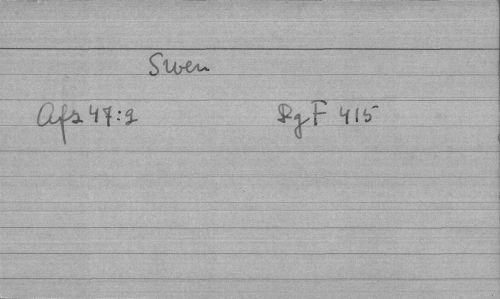 Swen
Afs 47:2 RgF 415